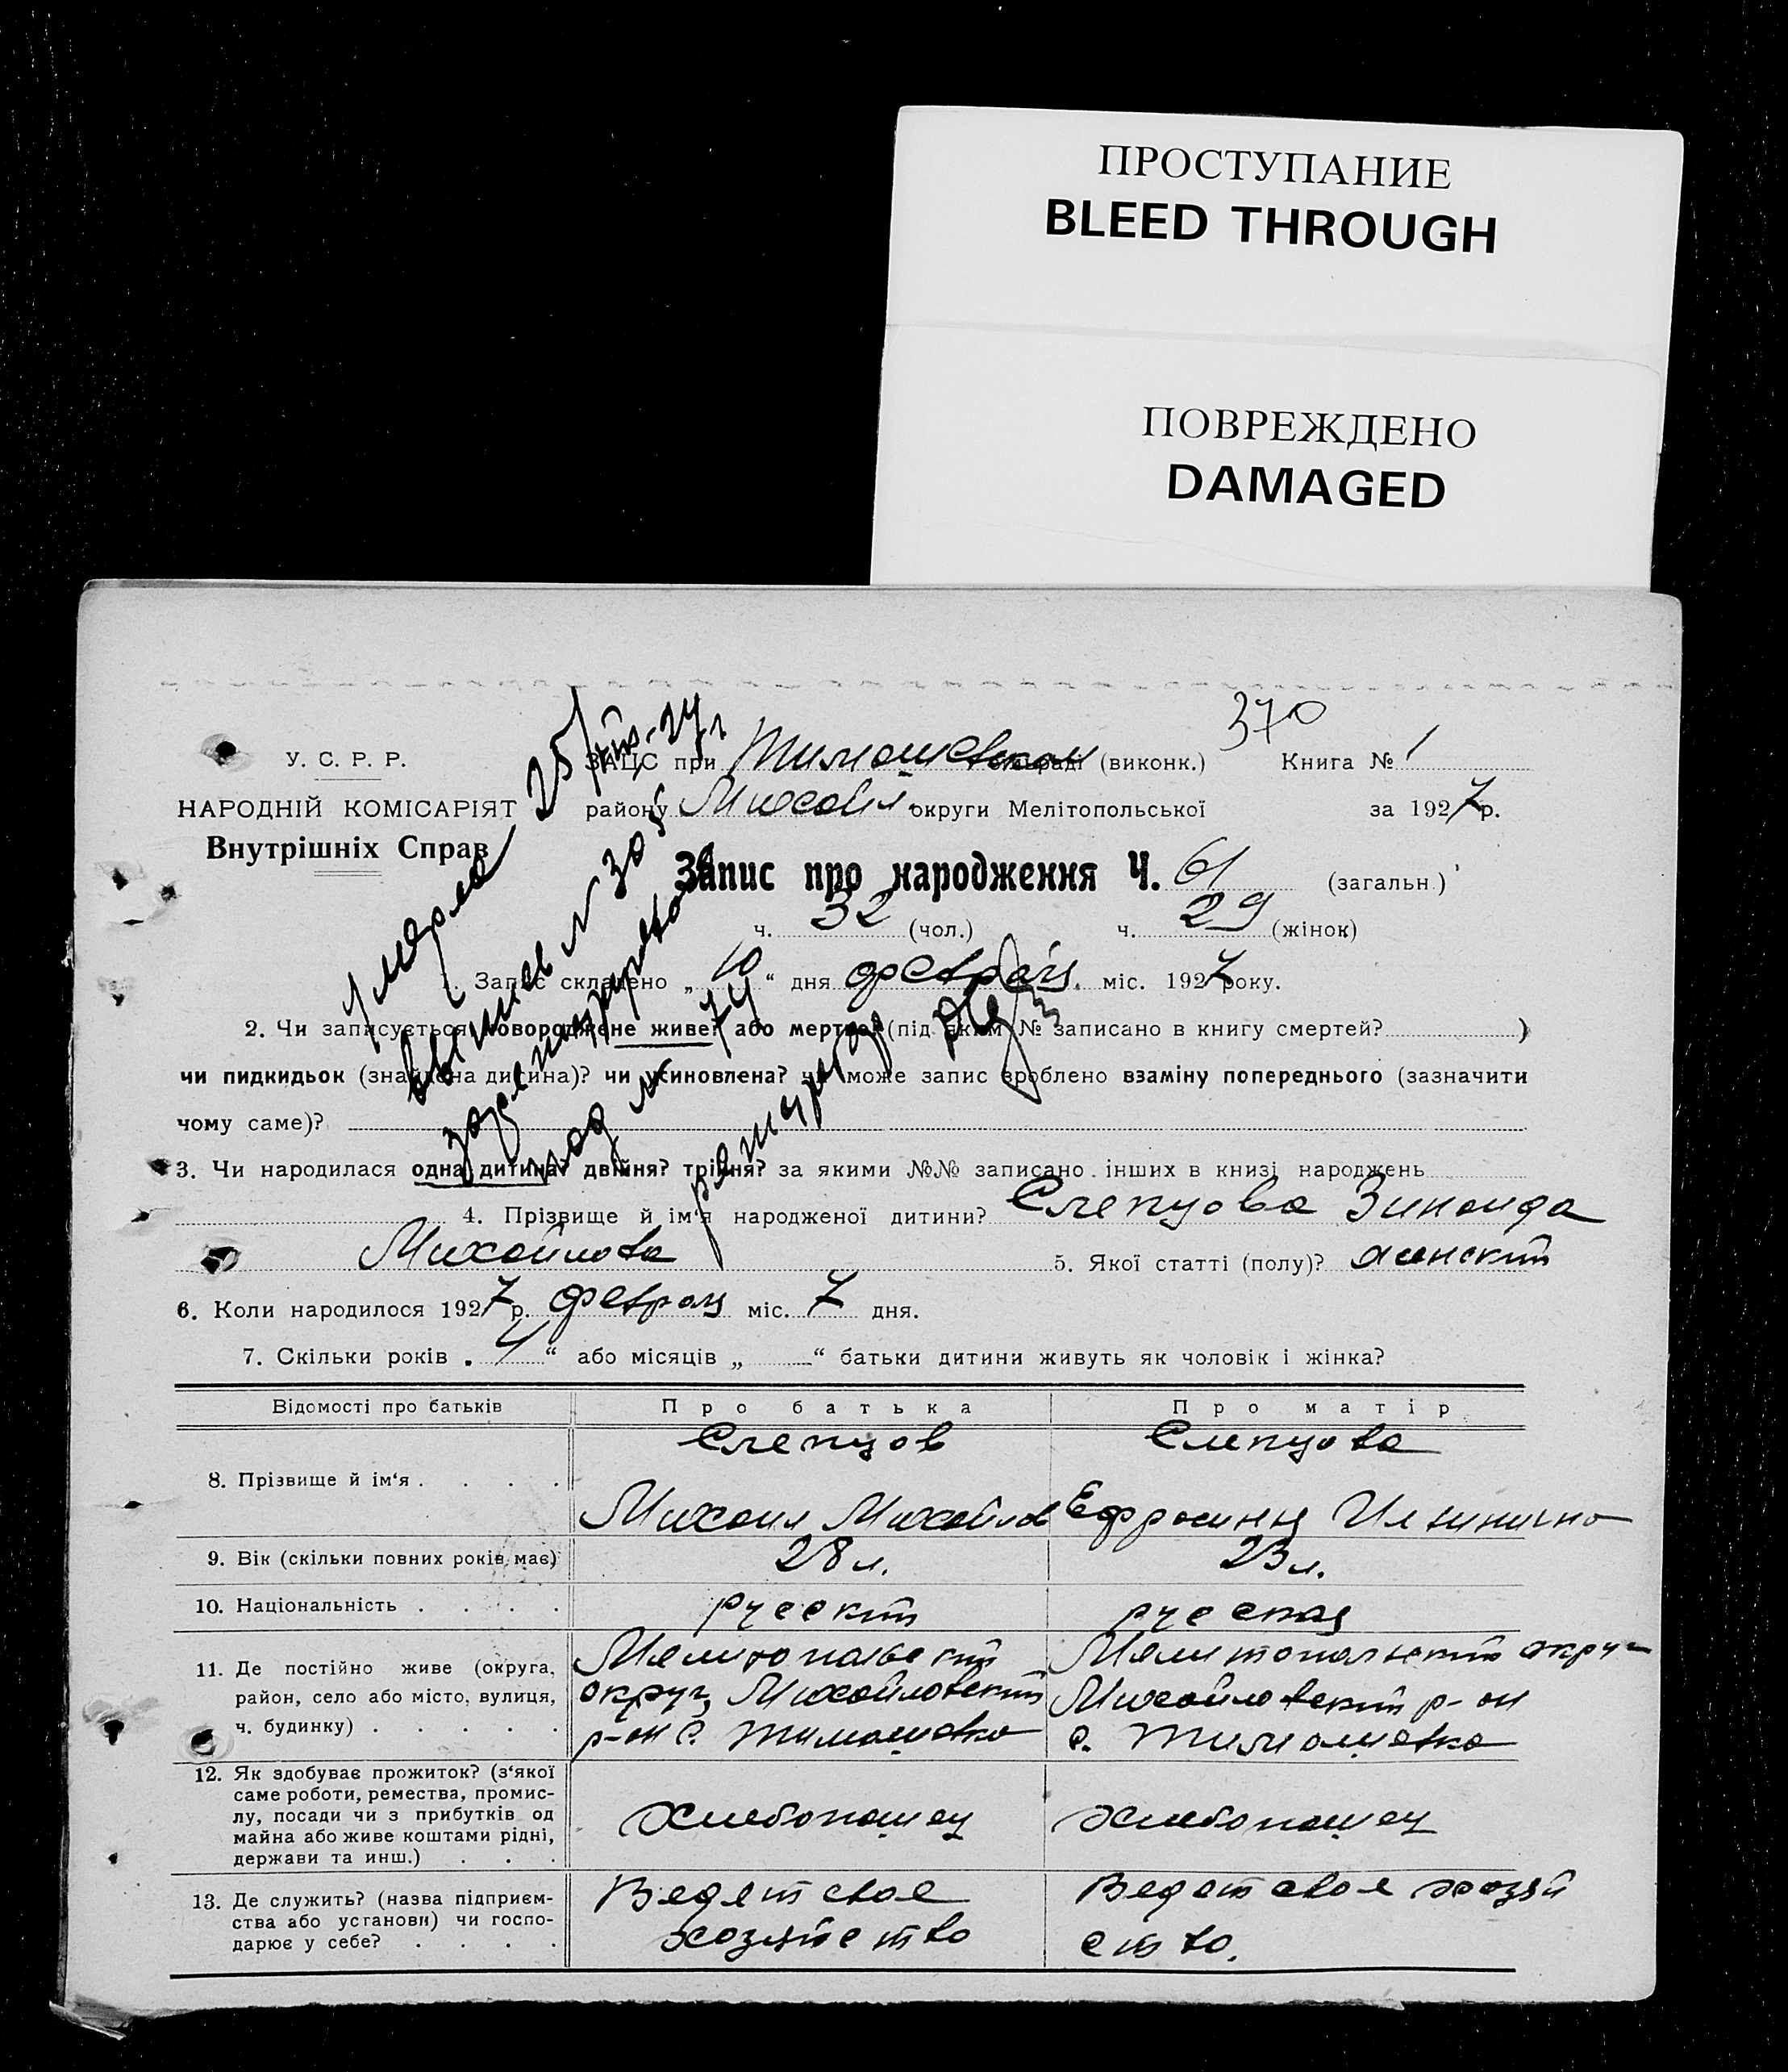 ПРОСТУПАНИЕ
BLEED THROUGH
ПОВРЕЖДЕНО
DAMAGED
370
У. С. Р. Р.
НАРОДНІЙ КОМІСАРІЯТ
Внутрішніх Справ
ЗАЦС при Тимошевском сільраді (виконк.) Книга № 1
району Михайл. округи Мелітопольської за 1927 р.
Запис про народження Ч. 61 (загальн.)
ч. 32 (чол.) ч. 29 (жінок)
1. Запис складено „ 10 “ дня февраля міс. 1927 року.
2. Чи записується новороджене живе? або мертве? (під яким № записано в книгу смертей? )
чи пидкидьок (знайдена дитина)? чи усиновлена? чи може запис зроблено взаміну попереднього (зазначити
чому саме)?
3. Чи народилася одна дитина? двійня? трійня? за якими №№ записано інших в книзі народжень
4. Прізвище й ім‘я народженої дитини? Слепцова Зинаида
Михайлова 5. Якої статті (полу)? женский
6. Коли народилося 1927 р. февраля міс. 7 дня.
7. Скільки років „ 4 “ або місяців „ — “ батьки дитини живуть як чоловік і жінка?
Умерла
Відомості про батьків Про батька Про матір
Слепцов Слепцова
8. Прізвище й ім‘я
Михаил Михайлов Ефросиния Ильинична
9. Вік (скільки повних років має) 28 л. 23 л.
10. Національність русский русская
11. Де постійно живе (округа, район, село або місто, вулиця, ч. будинку)
Мелитопольский
округ, Михайловский
р-он с. Тимошевка
Мелитопольский округ
Михайловский р-он
с. Тимошевка
12. Як здобуває прожиток? (з‘якої
саме роботи, ремества, промис-
лу, посади чи з прибутків од
майна або живе коштами рідні,
держави та инш.)
хлебопашец хлебопашец
13. Де служить? (назва підприєм-
ства або установи) чи госпо-
дарює у себе?
Ведет свое
хозяйство
Ведет свое хозяй
ство.